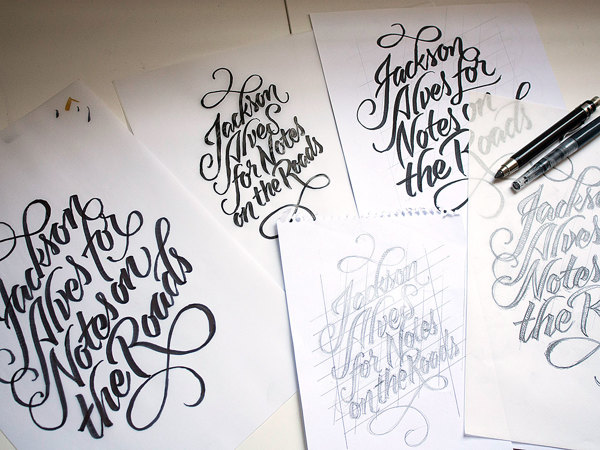 Jackson
Alves for
Notes on
the Roads
Jackson
Alves
for Notes
on the Roads
Jackson
Alves for
Notes on
the Roads
Jackson
Alves
for Notes
on the Roads
Jackson
Alves
Notes
the